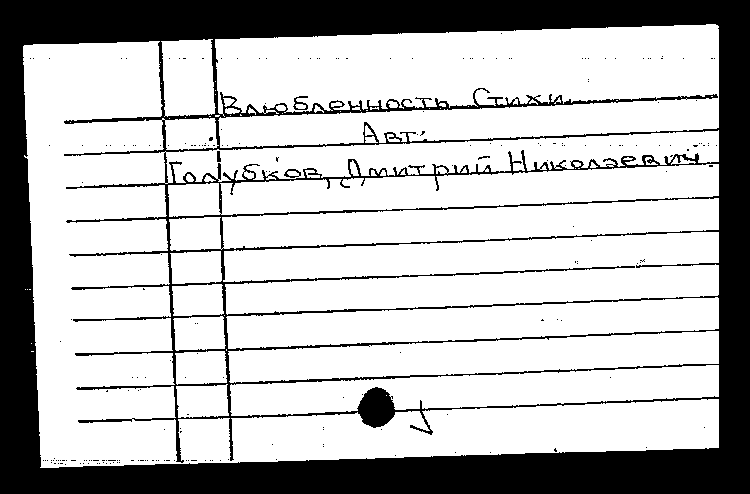 Влюбленность Стихи
Авт:
Голубков, Дмитрий Николаевич.